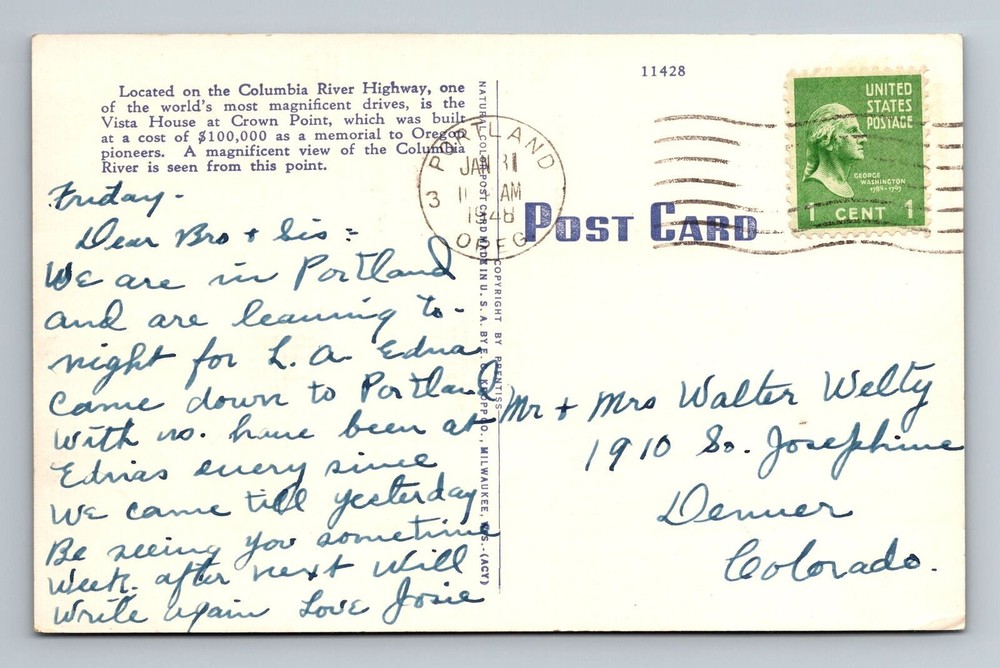 Located on the Columbia River Highway, one
of the world's most magnificent drives, is the
Vista House at Crown Point, which was built
at a cost of $100,000 as a memorial to Oregon
pioneers. A magnificent view of the Columbia
River is seen from this point.
Friday -
Dear Bro + Sis =
We are in Portland
and are leaving to-
night for L. A. Edna
came down to Portland
with us. have been at
Ednas every since
We came till yesterday
Be seeing you sometime
week after next Will
write again Love Josie
NATURAL COLOR POST CARD MADE IN U. S. A. BY E. C. KROPP CO., MILWAUKEE, WIS.-(ACY)
COPYRIGHT BY PRENTISS
11428
PORTLAND
3
JAN 31
AM
1948
OREG
POST CARD
UNITED
STATES
POSTAGE
GEORGE
WASHINGTON
1789-1797
1 CENT 1
Mr + Mrs Walter Welty
1910 So. Josephine
Denver
Colorado.